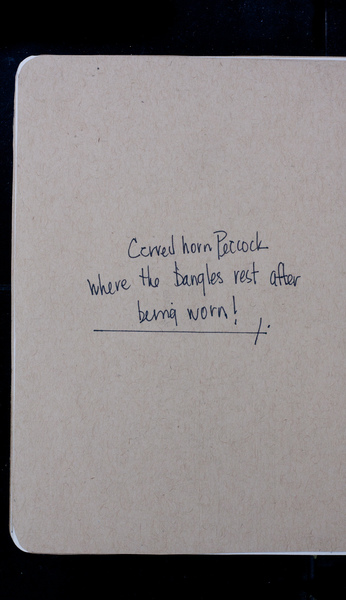 Carved horn Peacock
where the Bangles rest after
being worn!